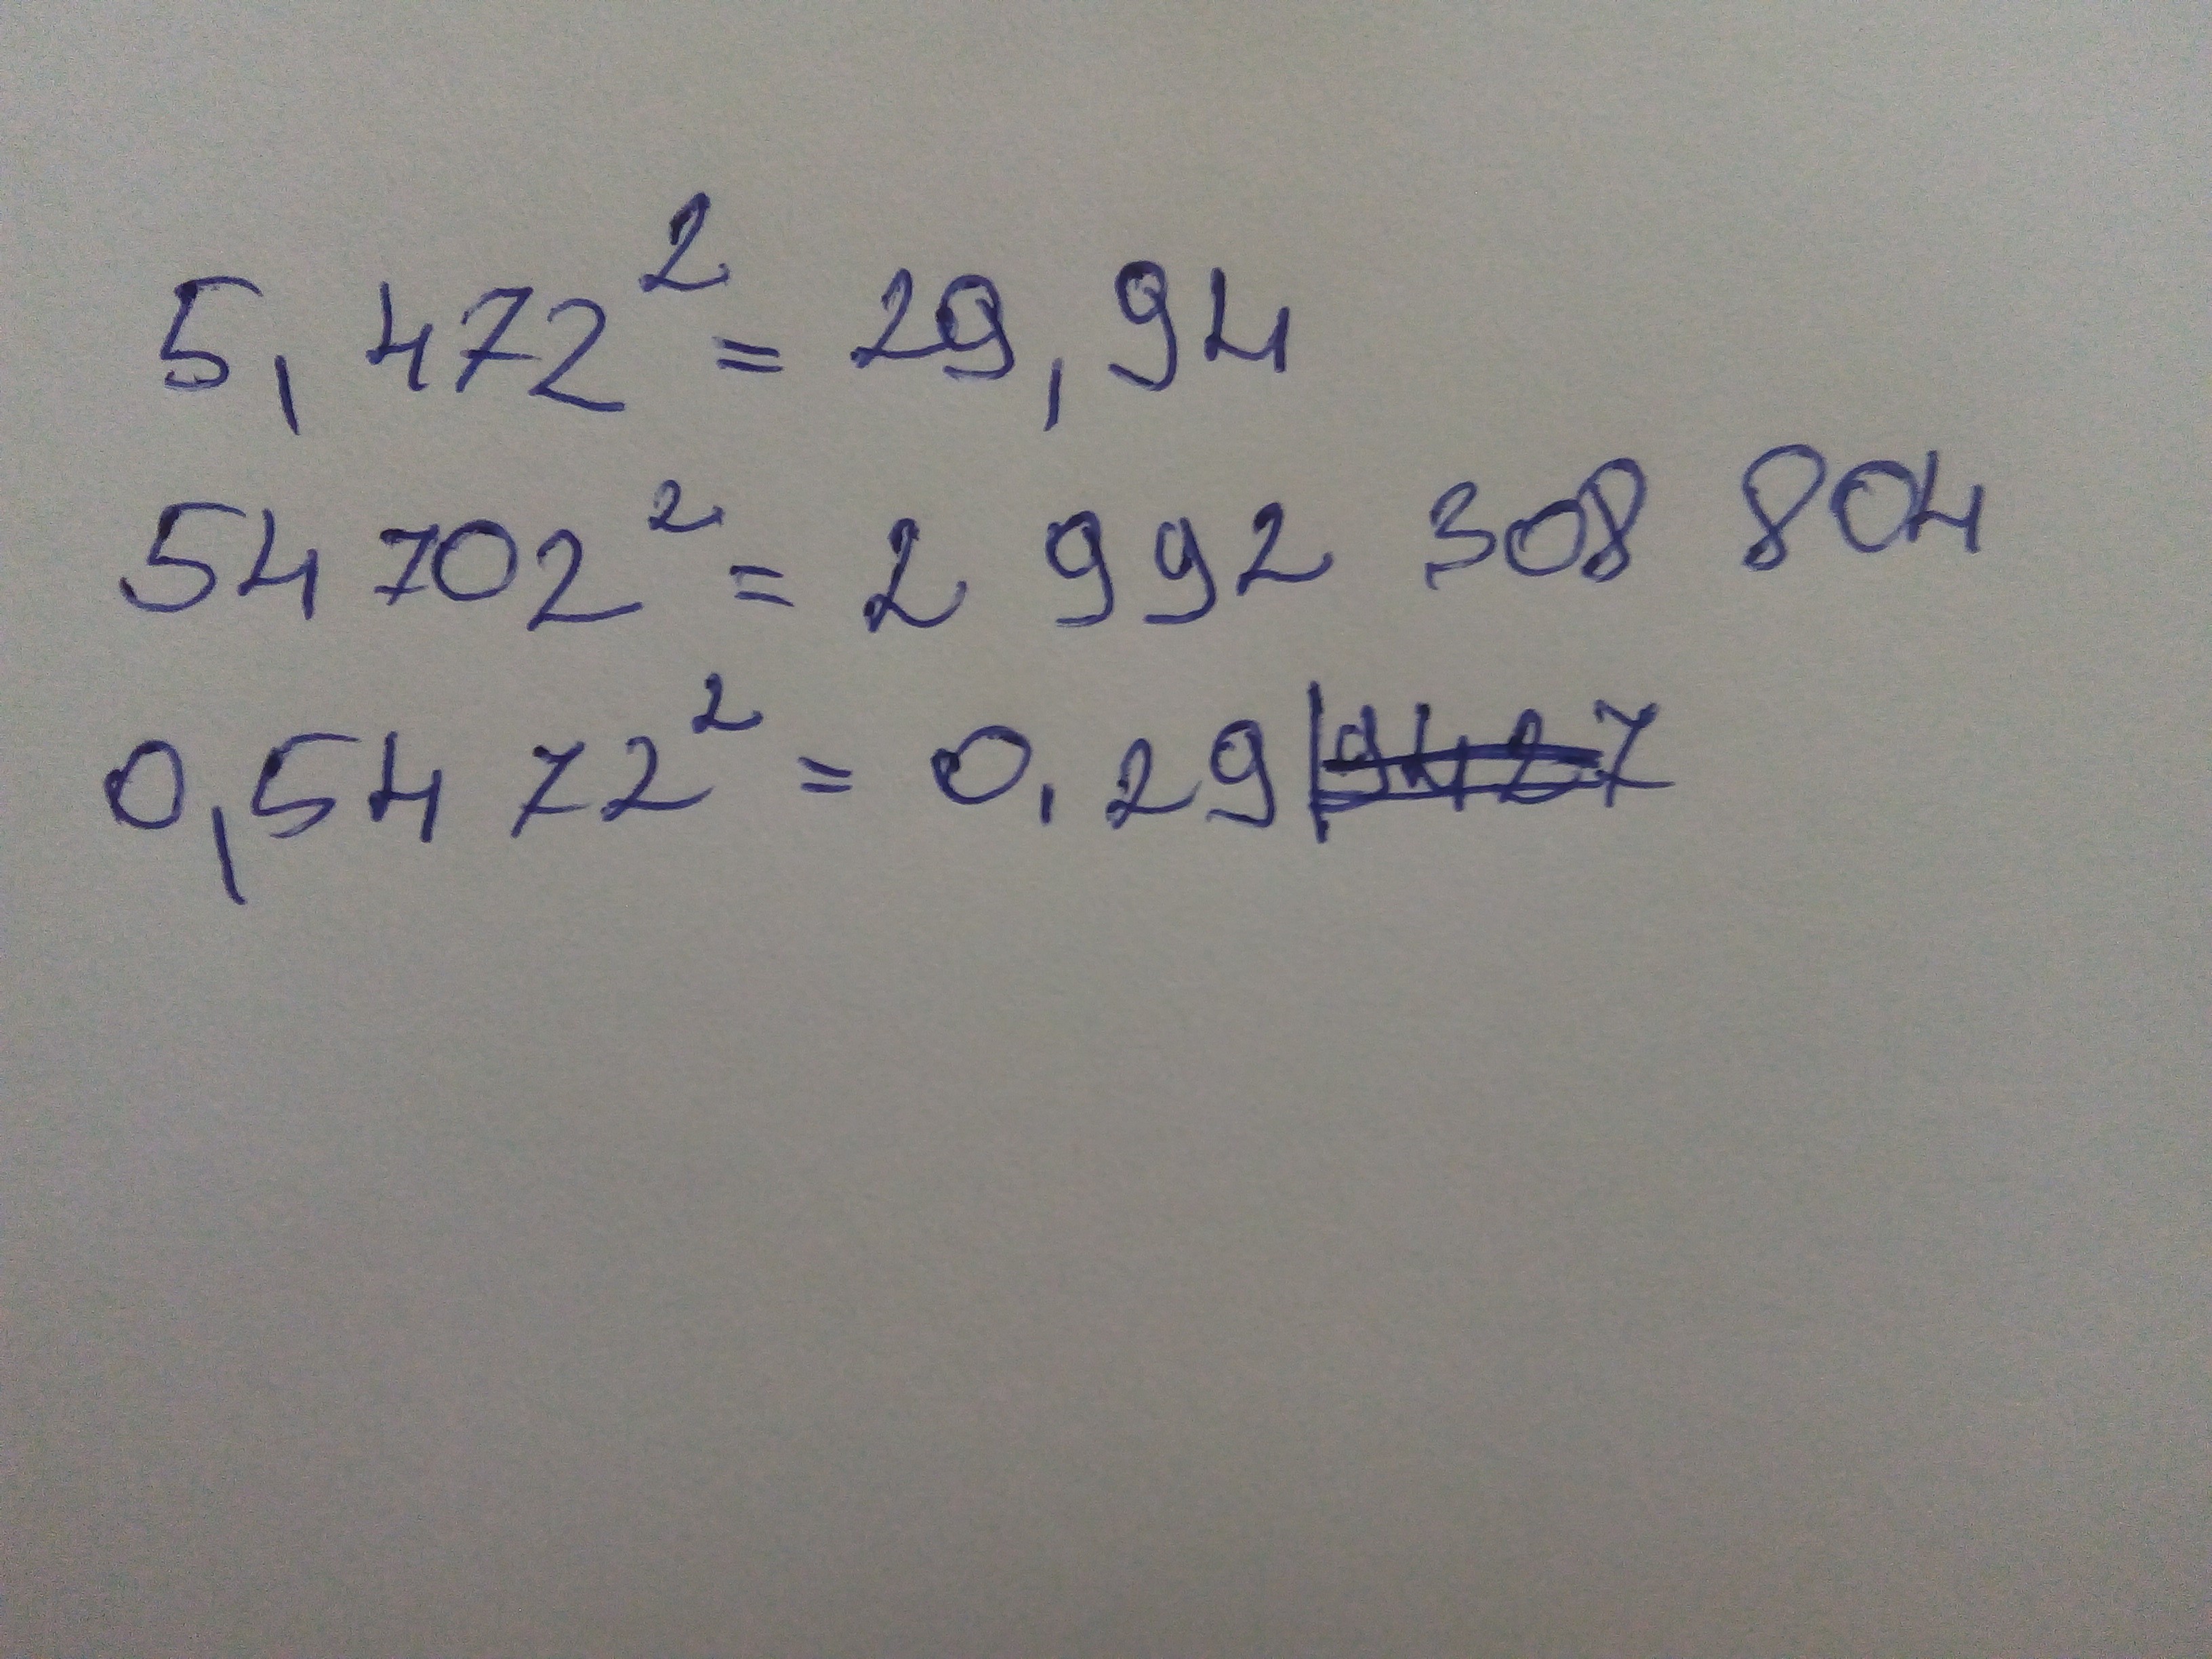 5,472² = 29,94
54702² = 2 992 308 804
0,5472² = 0,29